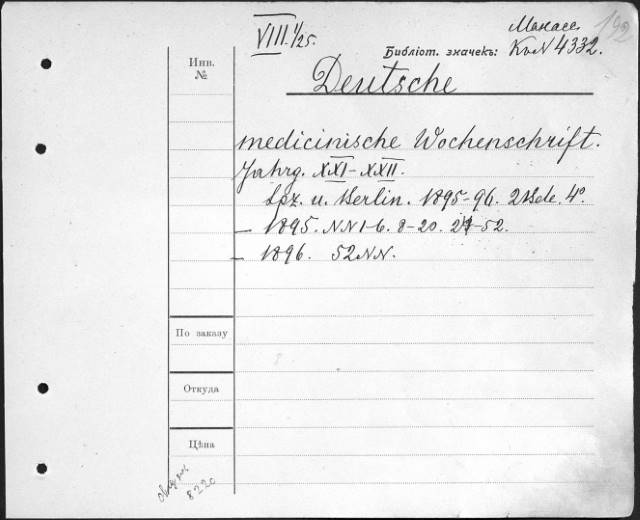 VIII. 1/25.
192
Манасс.
Библіот. значекъ: Кv N 4332.
Инв. №
Deutsche
medicinische Wochenschrift.
Jahrg. XXI–XXII.
Lpz. u. Berlin. 1895–96. 2 Bde. 4°.
– 1895. NN 1–6. 8–20. 21–52.
– 1896. 52 NN.
По заказу
Откуда
Цѣна
8220